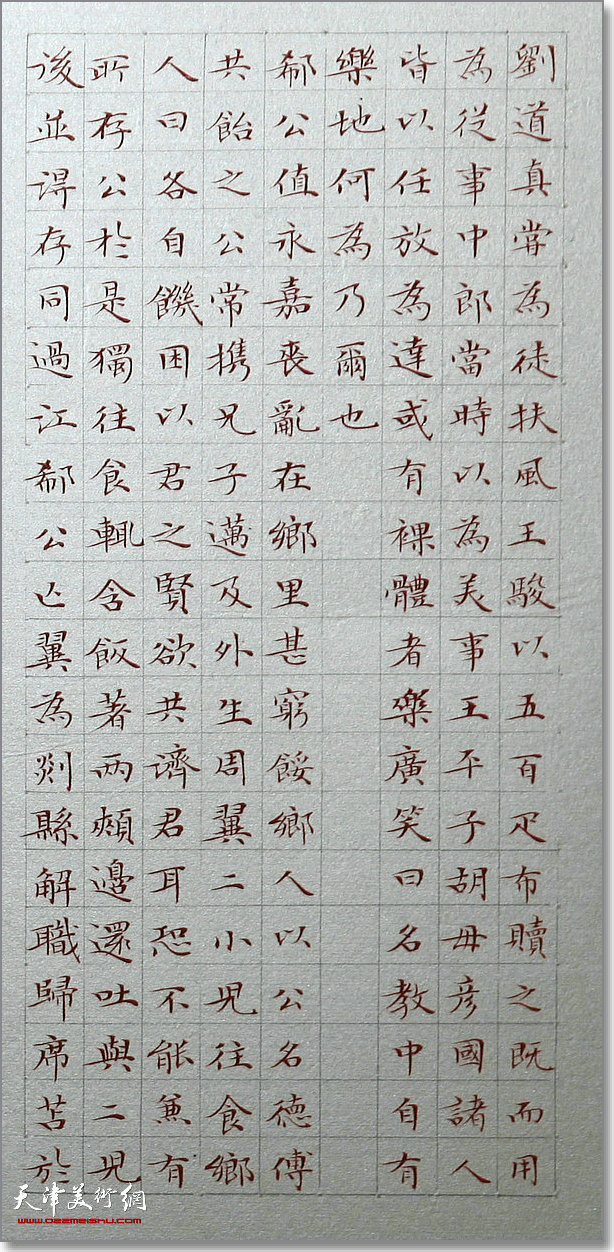 劉道真甞為徒扶風王駿以五百疋布贖之既而用
為從事中郎當時以為美事王平子胡毋彦國諸人
皆以任放為達或有裸體者樂廣笑曰名教中自有
樂地何為乃爾也
郗公值永嘉喪亂在鄉里甚窮餒鄉人以公名德傅
共飴之公常携兄子邁及外生周翼二小兒往食鄉
人曰各自饑困以君之賢欲共濟君耳恐不能兼有
所存公於是獨往食輒含飯著兩頰邊還吐與二兒
後並得存同過江郗公亡翼為剡縣解職歸席苫於
天津美術網
www.022meishu.com